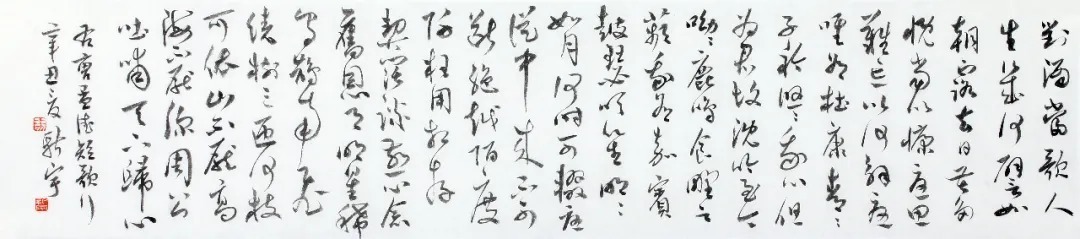 對酒當歌人
生幾何譬如
朝露去日苦多
慨當以慷憂思
難忘以何解憂
唯有杜康青々
子衿悠々我心但
為君故沈吟至今
呦々鹿鳴食野之
蘋我有嘉賓
鼓瑟吹笙明々
如月何時可掇憂
從中來不可
斷絕越陌度
阡枉用相存
契闊談讌心念
舊恩月明星稀
烏鵲南飛
繞樹三匝何枝
可依山不厭高
海不厭深周公
吐哺天下歸心
右曹孟德短歌行
辛丑夏